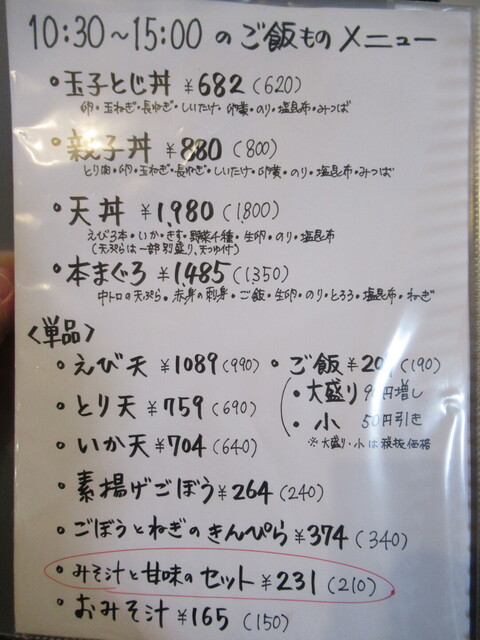 10:30〜15:00 のご飯もの メニュー
・玉子とじ丼 ¥682 (620)
卵・玉ねぎ・長ねぎ・しいたけ・卵黄・のり・塩昆布・みつば
・親子丼 ¥880 (800)
とり肉・卵・玉ねぎ・長ねぎ・しいたけ・卵黄・のり・塩昆布・みつば
・天丼 ¥1,980 (1,800)
えび3本・いか・きす・野菜4種・生卵・のり・塩昆布
(天ぷらは一部別盛り、天つゆ付)
・本まぐろ ¥1,485 (1,350)
中トロの天ぷら・赤身の刺身・ご飯・生卵・のり・とろろ・塩昆布・ねぎ
〈単品〉
・えび天 ¥1089 (990)
・ご飯 ¥20 (190)
・大盛り 円増し
・小 50円引き
※大盛り・小は税抜価格
・とり天 ¥759 (690)
・いか天 ¥704 (640)
・素揚げごぼう ¥264 (240)
・ごぼうとねぎのきんぴら ¥374 (340)
・みそ汁と甘味のセット ¥231 (210)
・おみそ汁 ¥165 (150)